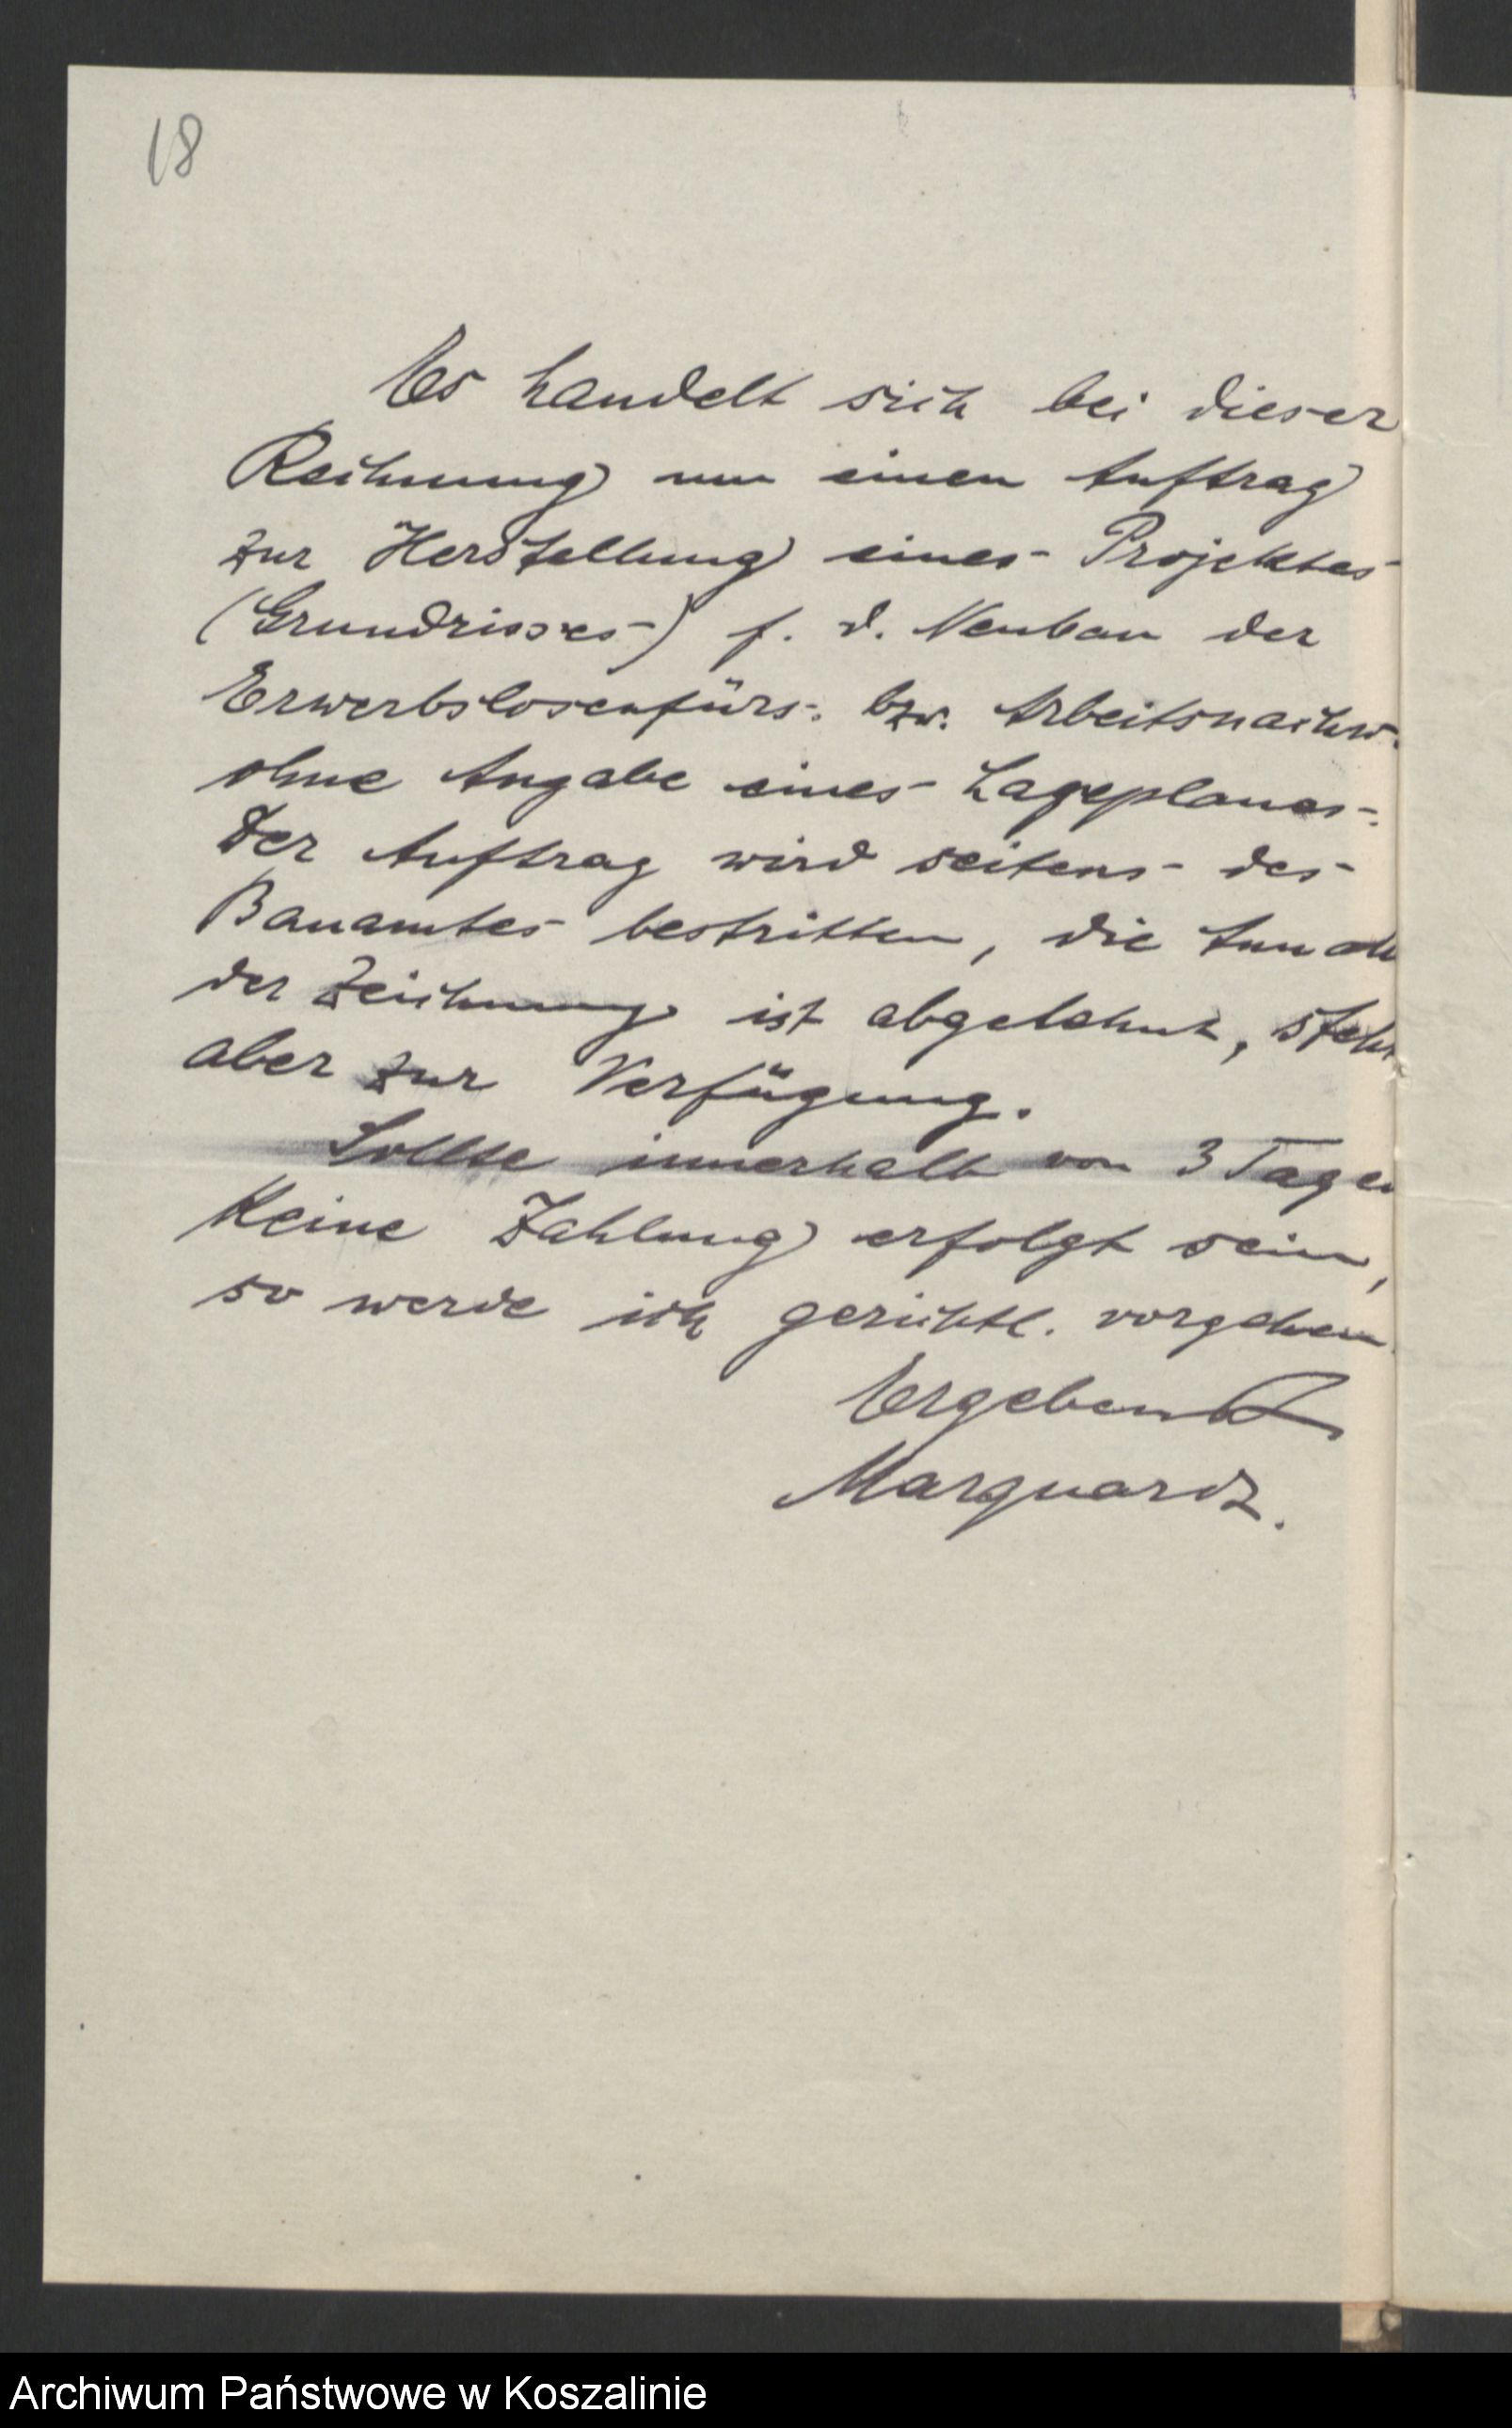 18
Es handelt sich bei dieser
Rechnung um einen Auftrag
zur Herstellung eines Projektes
(Grundrisses) f. d. Neubau der
Erwerbslosenfürs. bzw. Arbeitsnachw.
ohne Angabe eines Lageplanes.
Der Auftrag wird seitens des
Bauamtes bestritten, die
der Zeichnung ist abgelehnt, steht
aber zur Verfügung.
Sollte innerhalb von 3 Tagen
keine Zahlung erfolgt sein,
so werde ich gerichtl. vorgehen.
Ergebenst
Marquardt.
Archiwum Państwowe w Koszalinie